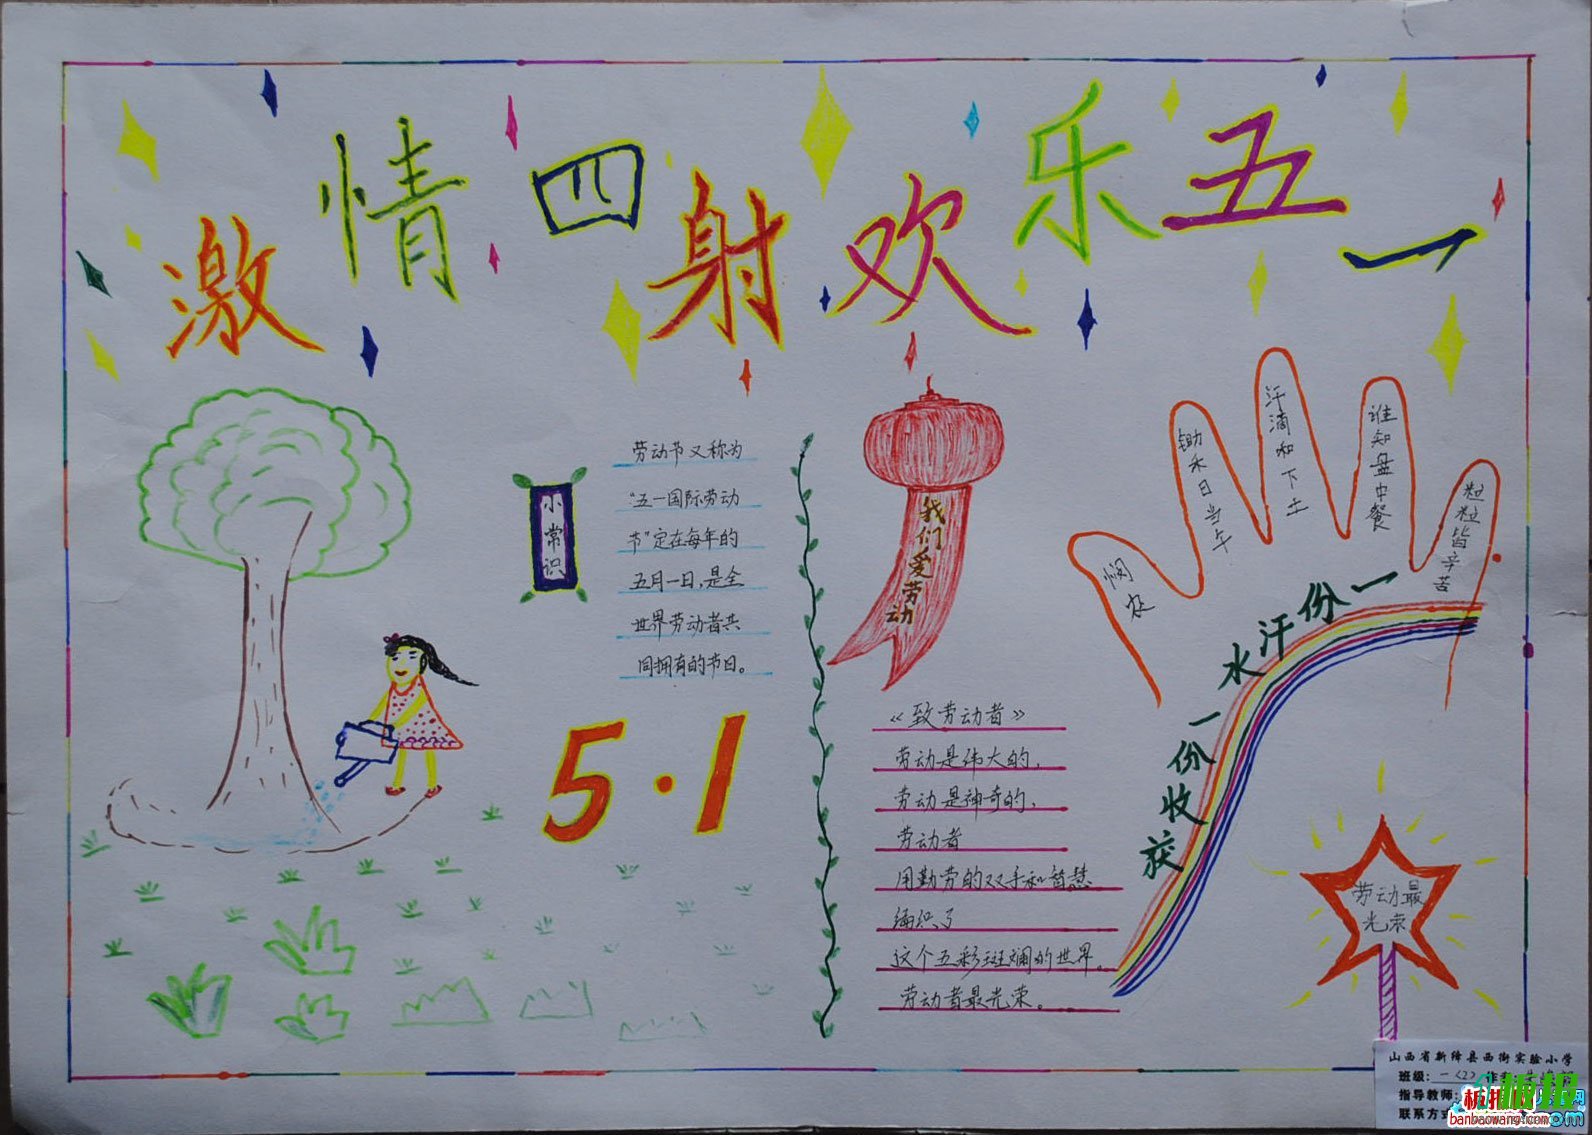 激情四射欢乐五一
小常识
劳动节又称为
“五一国际劳动
节”定在每年的
五月一日，是全
世界劳动者共
同拥有的节日。
5·1
我们爱劳动
《致劳动者》
劳动是伟大的，
劳动是神奇的，
劳动者
用勤劳的双手和智慧
编织了
这个五彩斑斓的世界。
劳动者最光荣。
悯农
锄禾日当午
汗滴和下土
谁知盘中餐
粒粒皆辛苦
一份汗水
一份收获
劳动最
光荣
山西省新绛县西街实验小学
班级：一〈2〉
指导教师：
联系方式
banbaowang.com